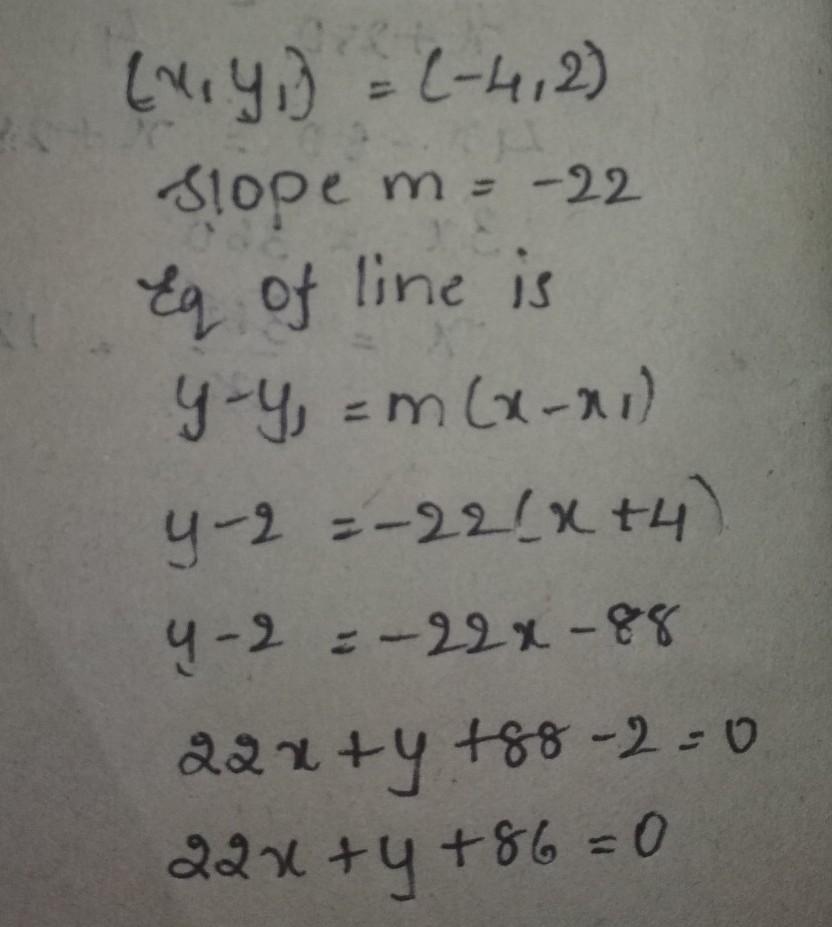 (x₁ y₁) = (-4,2)
Slope m = -22
Eq of line is
y-y₁ = m(x-x₁)
y-2 = -22(x+4)
y-2 = -22x-88
22x+y+88-2=0
22x+y+86=0